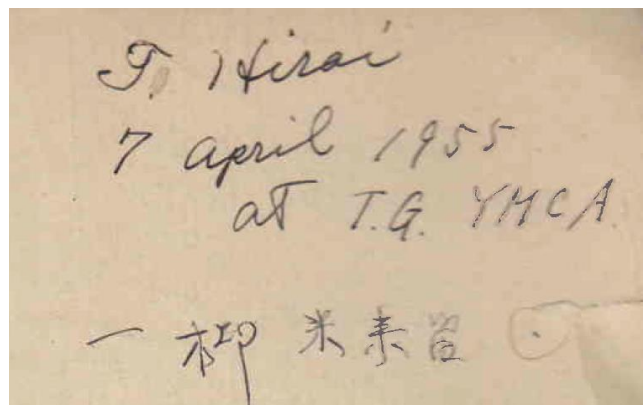 T. Hirai
7 April 1955
at T.G. YMCA
一柳 米来留